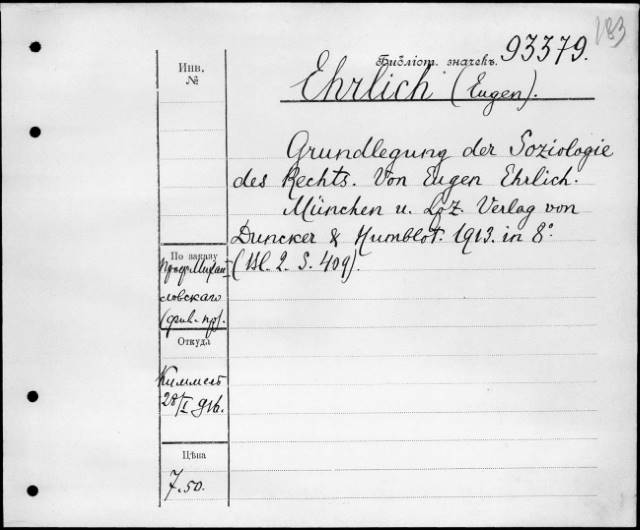 183
Инв. №
Библіот. значекъ. 93379.
Ehrlich (Eugen).
Grundlegung der Soziologie
des Rechts. Von Eugen Ehrlich.
München u. Lpz. Verlag von
Duncker & Humblot. 1913. in 8°
(Bl. 2. S. 409).
По заказу
проф. Михай
ловскаго
(фил. пр).
Откуда
Киммель
28/I 916.
Цѣна
7.50.